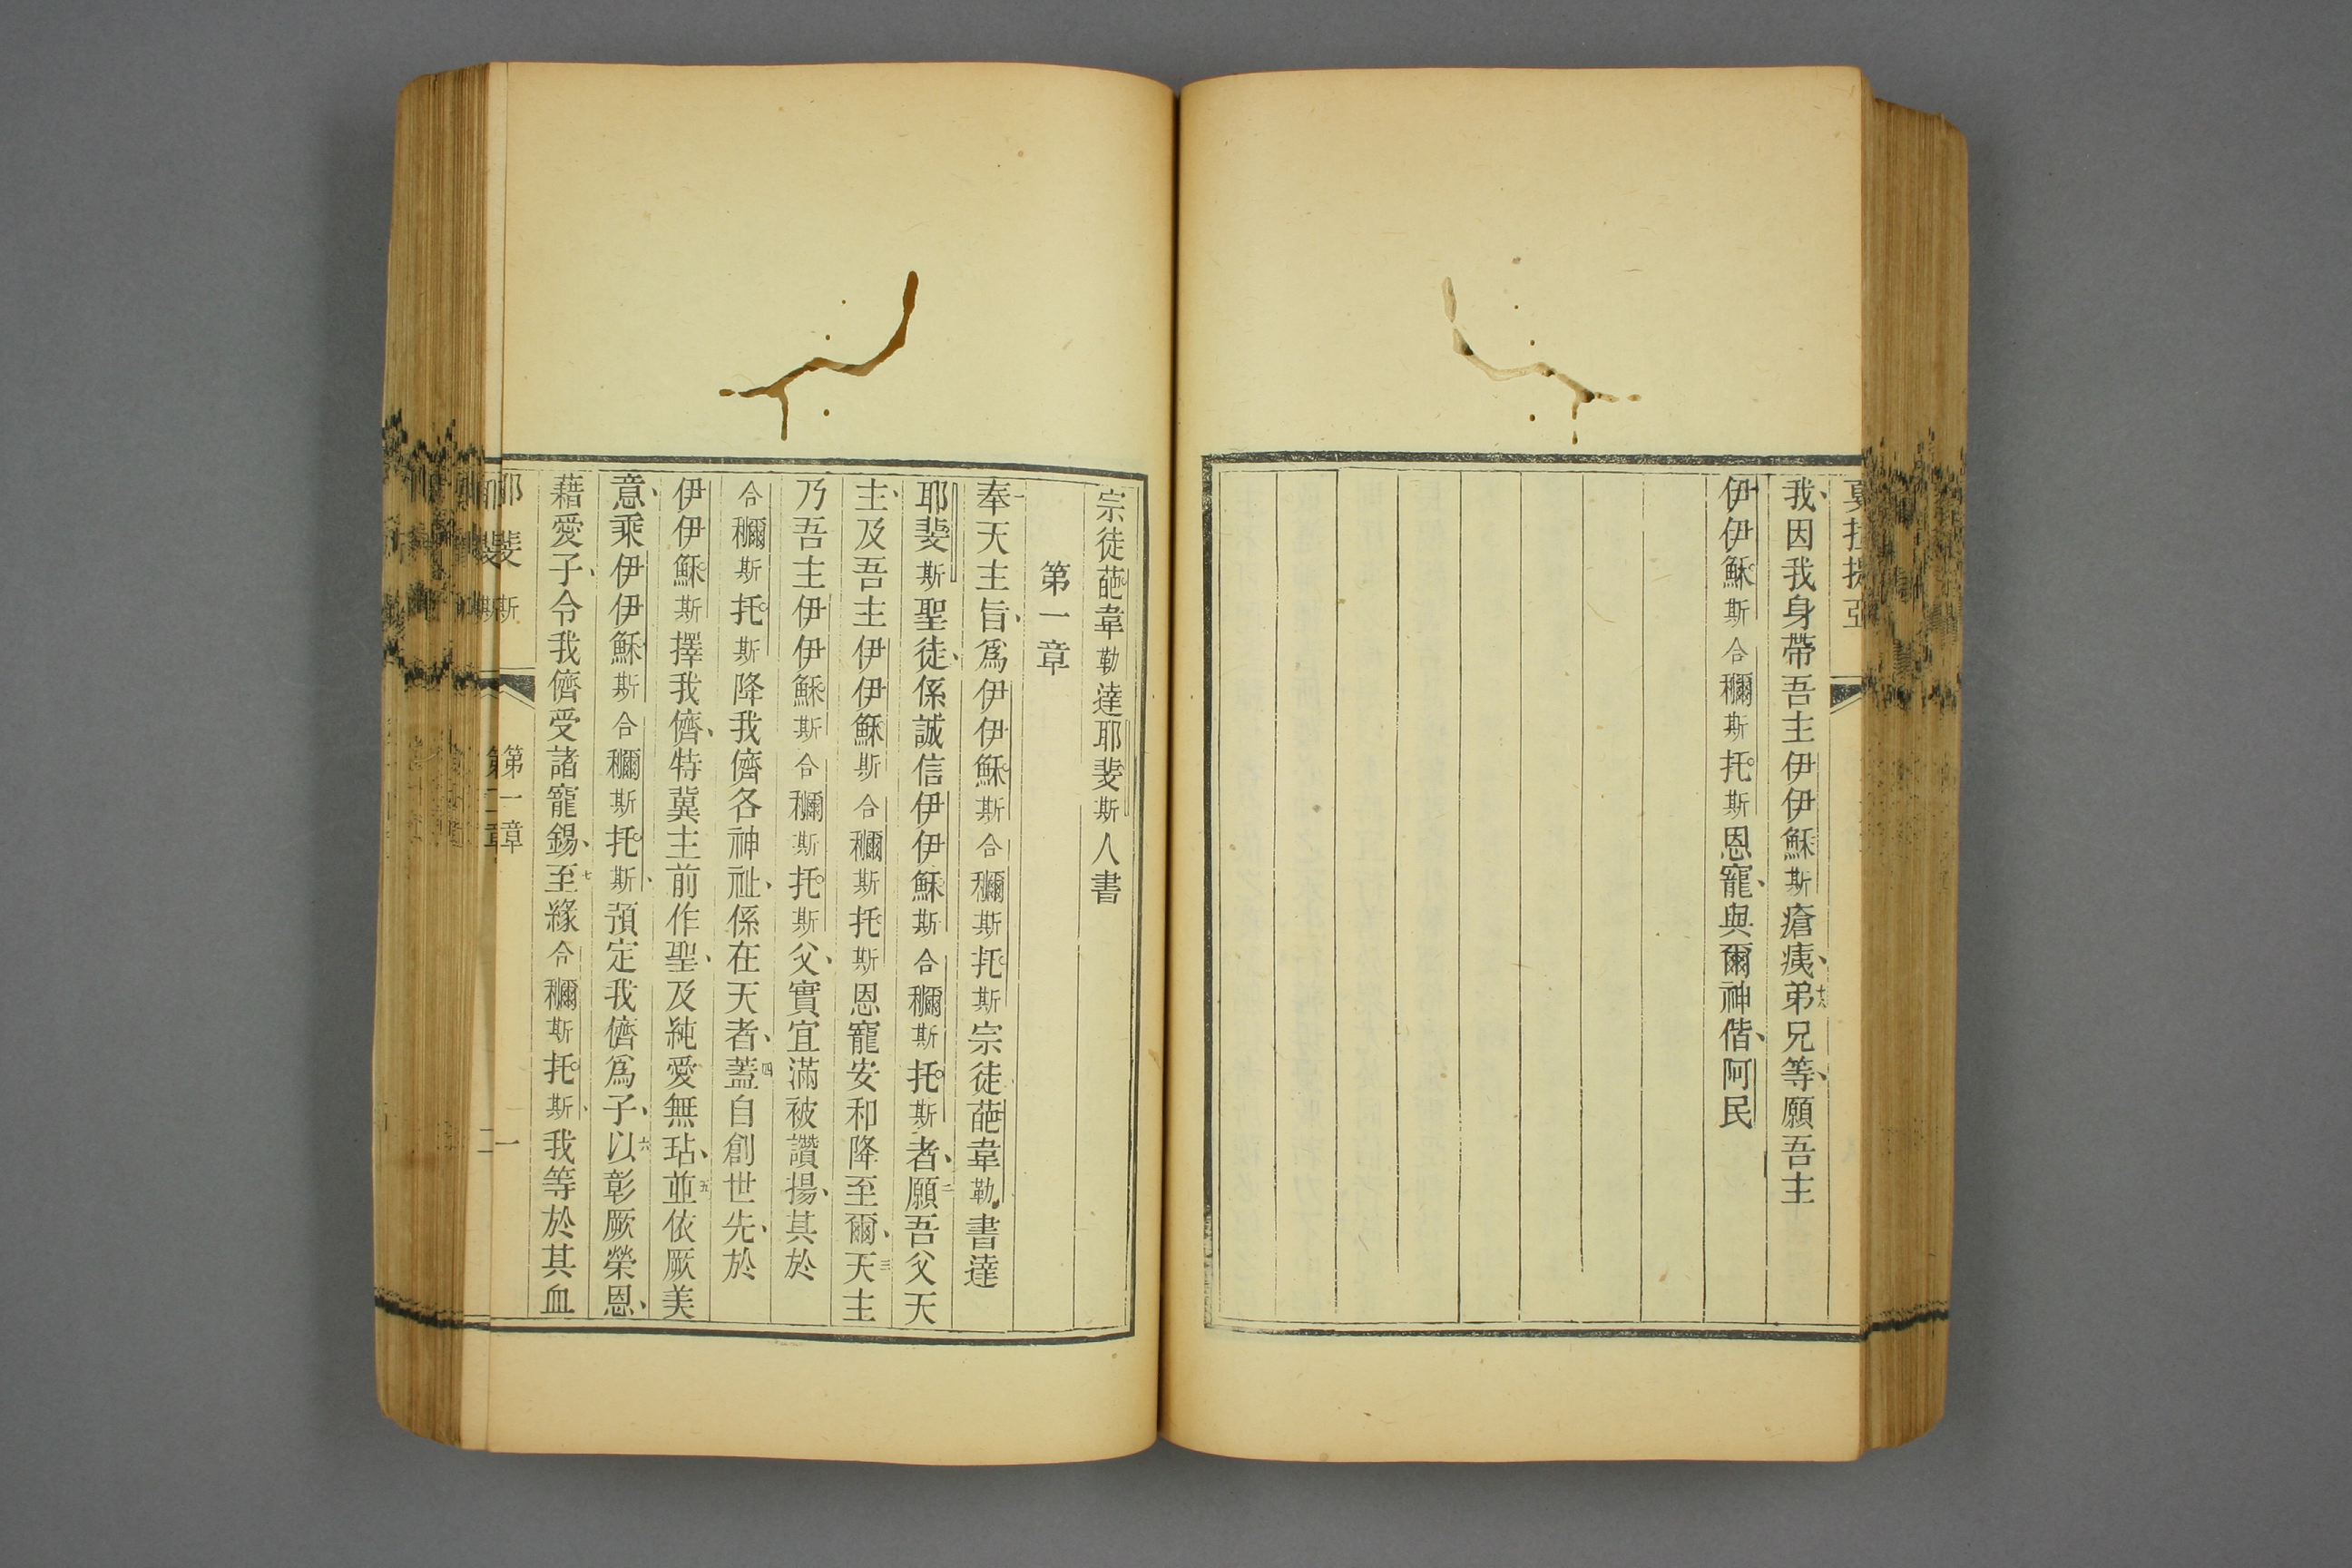 我、因我身帶吾主伊伊穌斯瘡痍、十八弟兄等、願吾主
伊伊穌斯合穪斯托斯恩寵、與爾神偕、阿民
宗徒葩韋勒達耶斐斯人書
第一章
一奉天主旨、爲伊伊穌斯合穪斯托斯宗徒葩韋勒書達
耶斐斯聖徒、係誠信伊伊穌斯合穪斯托斯者、二願吾父天
主、及吾主伊伊穌斯合穪斯托斯恩寵安和降至爾、三天主
乃吾主伊伊穌斯合穪斯托斯父、實宜滿被讚揚、其於
合穪斯托斯降我儕各神祉、係在天者、四蓋自創世先、於
伊伊穌斯擇我儕、特冀主前作聖、及純愛無玷、五並依厥美
意、乘伊伊穌斯合穪斯托斯、預定我儕爲子、六以彰厥榮恩、
藉愛子、令我儕受諸寵錫、七至緣合穪斯托斯、我等於其血
耶斐斯
第一章
一
第二章
二